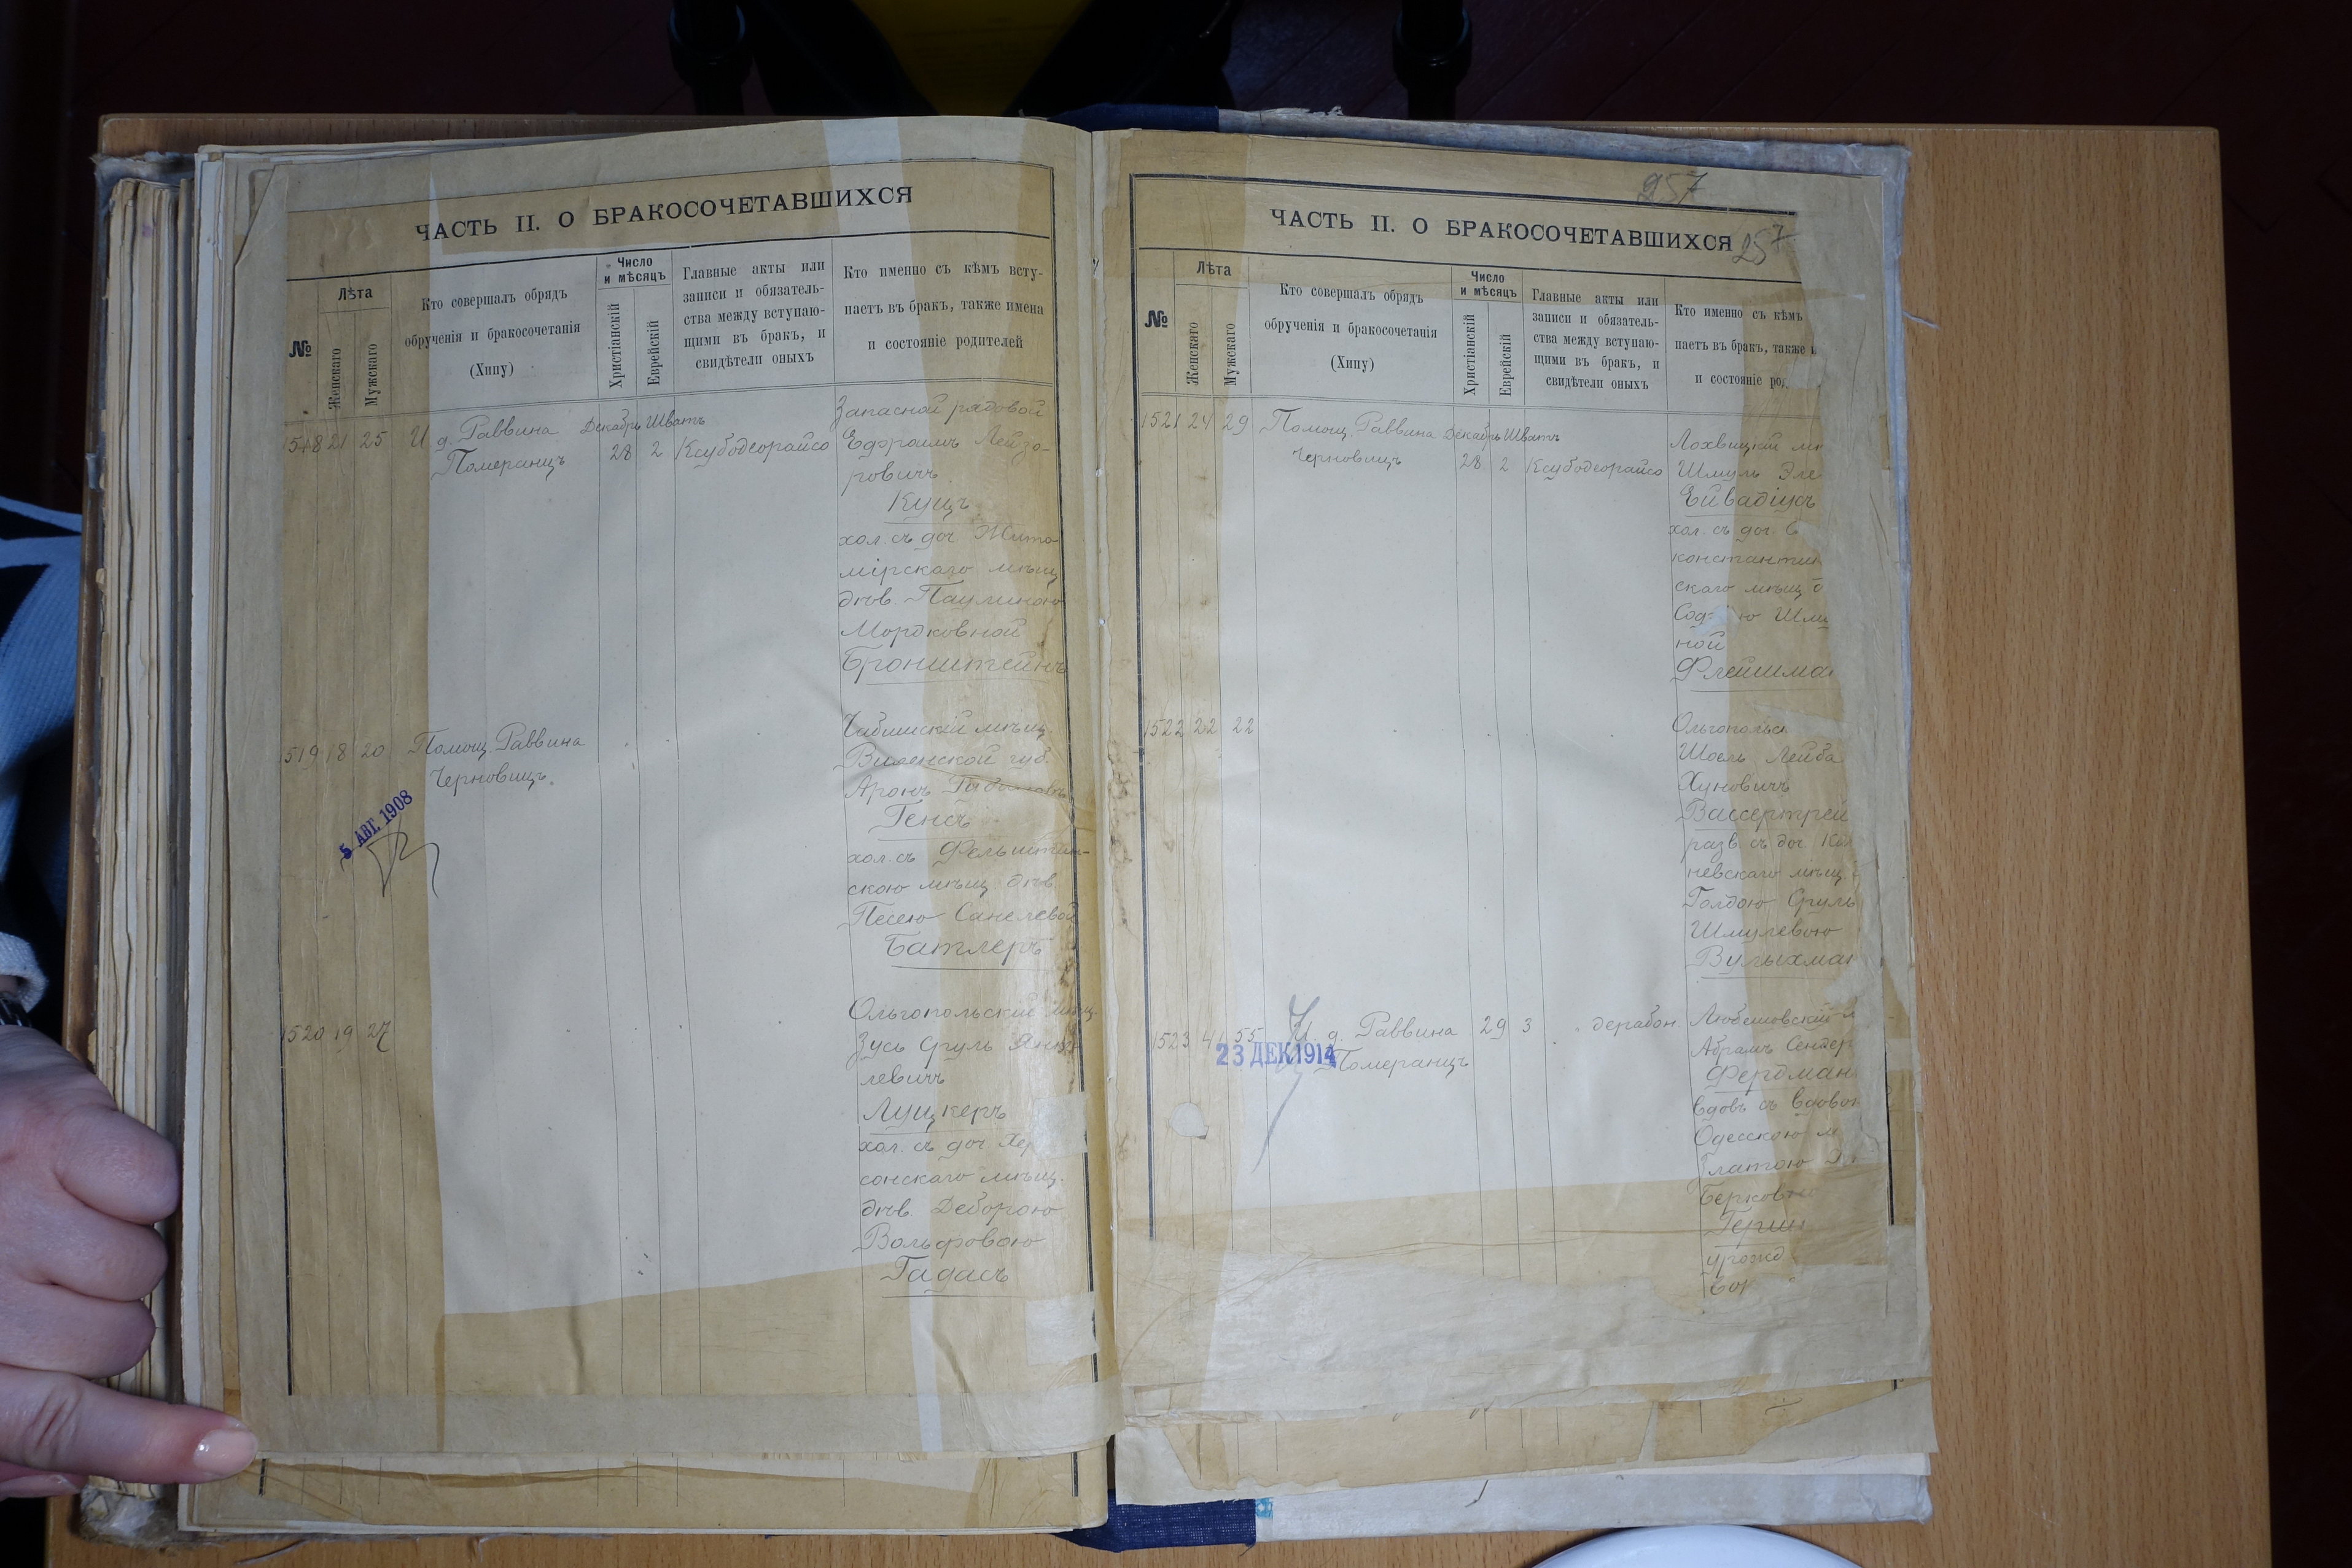 ЧАСТЬ II. О БРАКОСОЧЕТАВШИХСЯ
№
Лѣта
Женскаго
Мужскаго
Кто совершалъ обрядъ
обрученія и бракосочетанія
(Хипу)
Число
и мѣсяцъ
Христіанскій
Еврейскій
Главные акты или
записи и обязатель-
ства между вступаю-
щими въ бракъ, и
свидѣтели оныхъ
Кто именно съ кѣмъ всту-
паетъ въ бракъ, также имена
и состояніе родителей
1518 21 25 И. д. Раввина
Померанцъ
Декабрь Шватъ
28 2 Ксубодеорайсо
Запасной рядовой
Ефроимъ Лейзо-
ровичъ
Куцъ
хол. съ доч. Жито-
мірскаго мѣщ.
дѣв. Паулиною
Мордковной
Бронштейнъ
1519 18 20 Помощ. Раввина
Черновицъ.
5 АВГ. 1908
мѣщ.
Виленской губ.
Аронъ
Генсъ
хол. съ Фельштин-
скою мѣщ. дѣв.
Песею Санелевой
Батлеръ
1520 19 27
Ольгопольскій мѣщ.
Зусь Сруль Янке-
левичъ
Луцкеръ
хол. съ доч. Хер
сонскаго мѣщ.
дѣв. Деборою
Вольфовою
Гадасъ
257
257
ЧАСТЬ II. О БРАКОСОЧЕТАВШИХСЯ
№
Лѣта
Женскаго
Мужскаго
Кто совершалъ обрядъ
обрученія и бракосочетанія
(Хипу)
Число
и мѣсяцъ
Христіанскій
Еврейскій
Главные акты или
записи и обязатель-
ства между вступаю-
щими въ бракъ, и
свидѣтели оныхъ
Кто именно съ кѣмъ
паетъ въ бракъ, также
и состояніе ро
1521 24 29 Помощ. Раввина
Черновицъ
Декабрь Шватъ
28 2 Ксубодеорайсо
Лохвицкій
Шмуль
Ейвадіусъ
хол. съ доч. С
константин
скаго мѣщ.
ю Шму
ной
Флейшма
1522 22 22
Ольгопольс
Шоель Лейба
Хуновичъ
Вассертрей
разв. съ доч.
невскаго мѣщ.
Голдою Сруль
Шмулевою
Вулыхман
1523 4 55 И. д. Раввина
Померанцъ
29 3 дерабон
23 ДЕК 1914
Любешовскій
Абрамъ Сентер
Фердман
вдовъ съ вдово
Одесскою м
Златою
Берковн
Герш
урожд